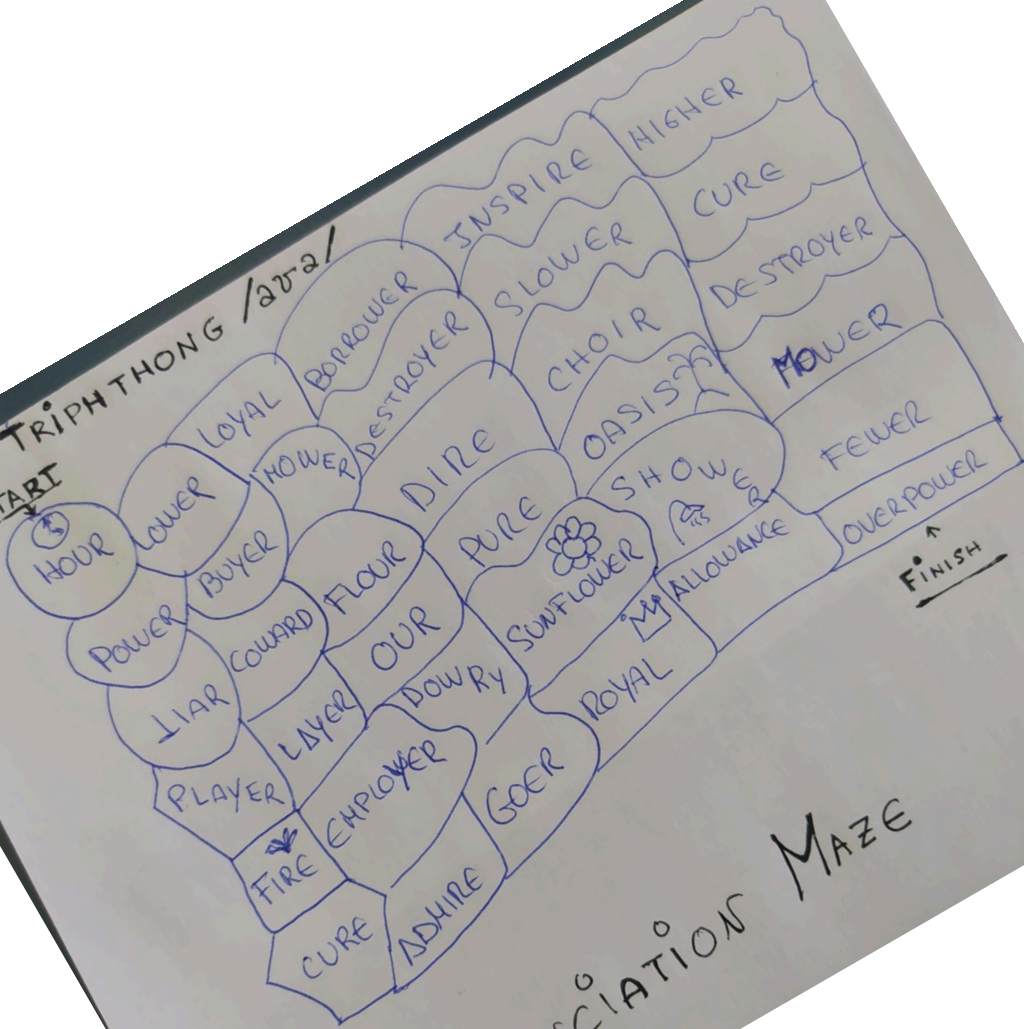 TRIPHTHONG /aʊə/
START
HOUR
LOWER
LOYAL
BORROWER
INSPIRE
HIGHER
POWER
BUYER
MOWER
DESTROYER
SLOWER
CURE
LIAR
COWARD
FLOUR
DIRE
CHOIR
DESTROYER
PLAYER
LAYER
OUR
PURE
OASIS
MOWER
FIRE
EMPLOYER
DOWRY
SUNFLOWER
SHOWER
FEWER
CURE
ADMIRE
GOER
ROYAL
ALLOWANCE
OVERPOWER
FINISH
MAZE